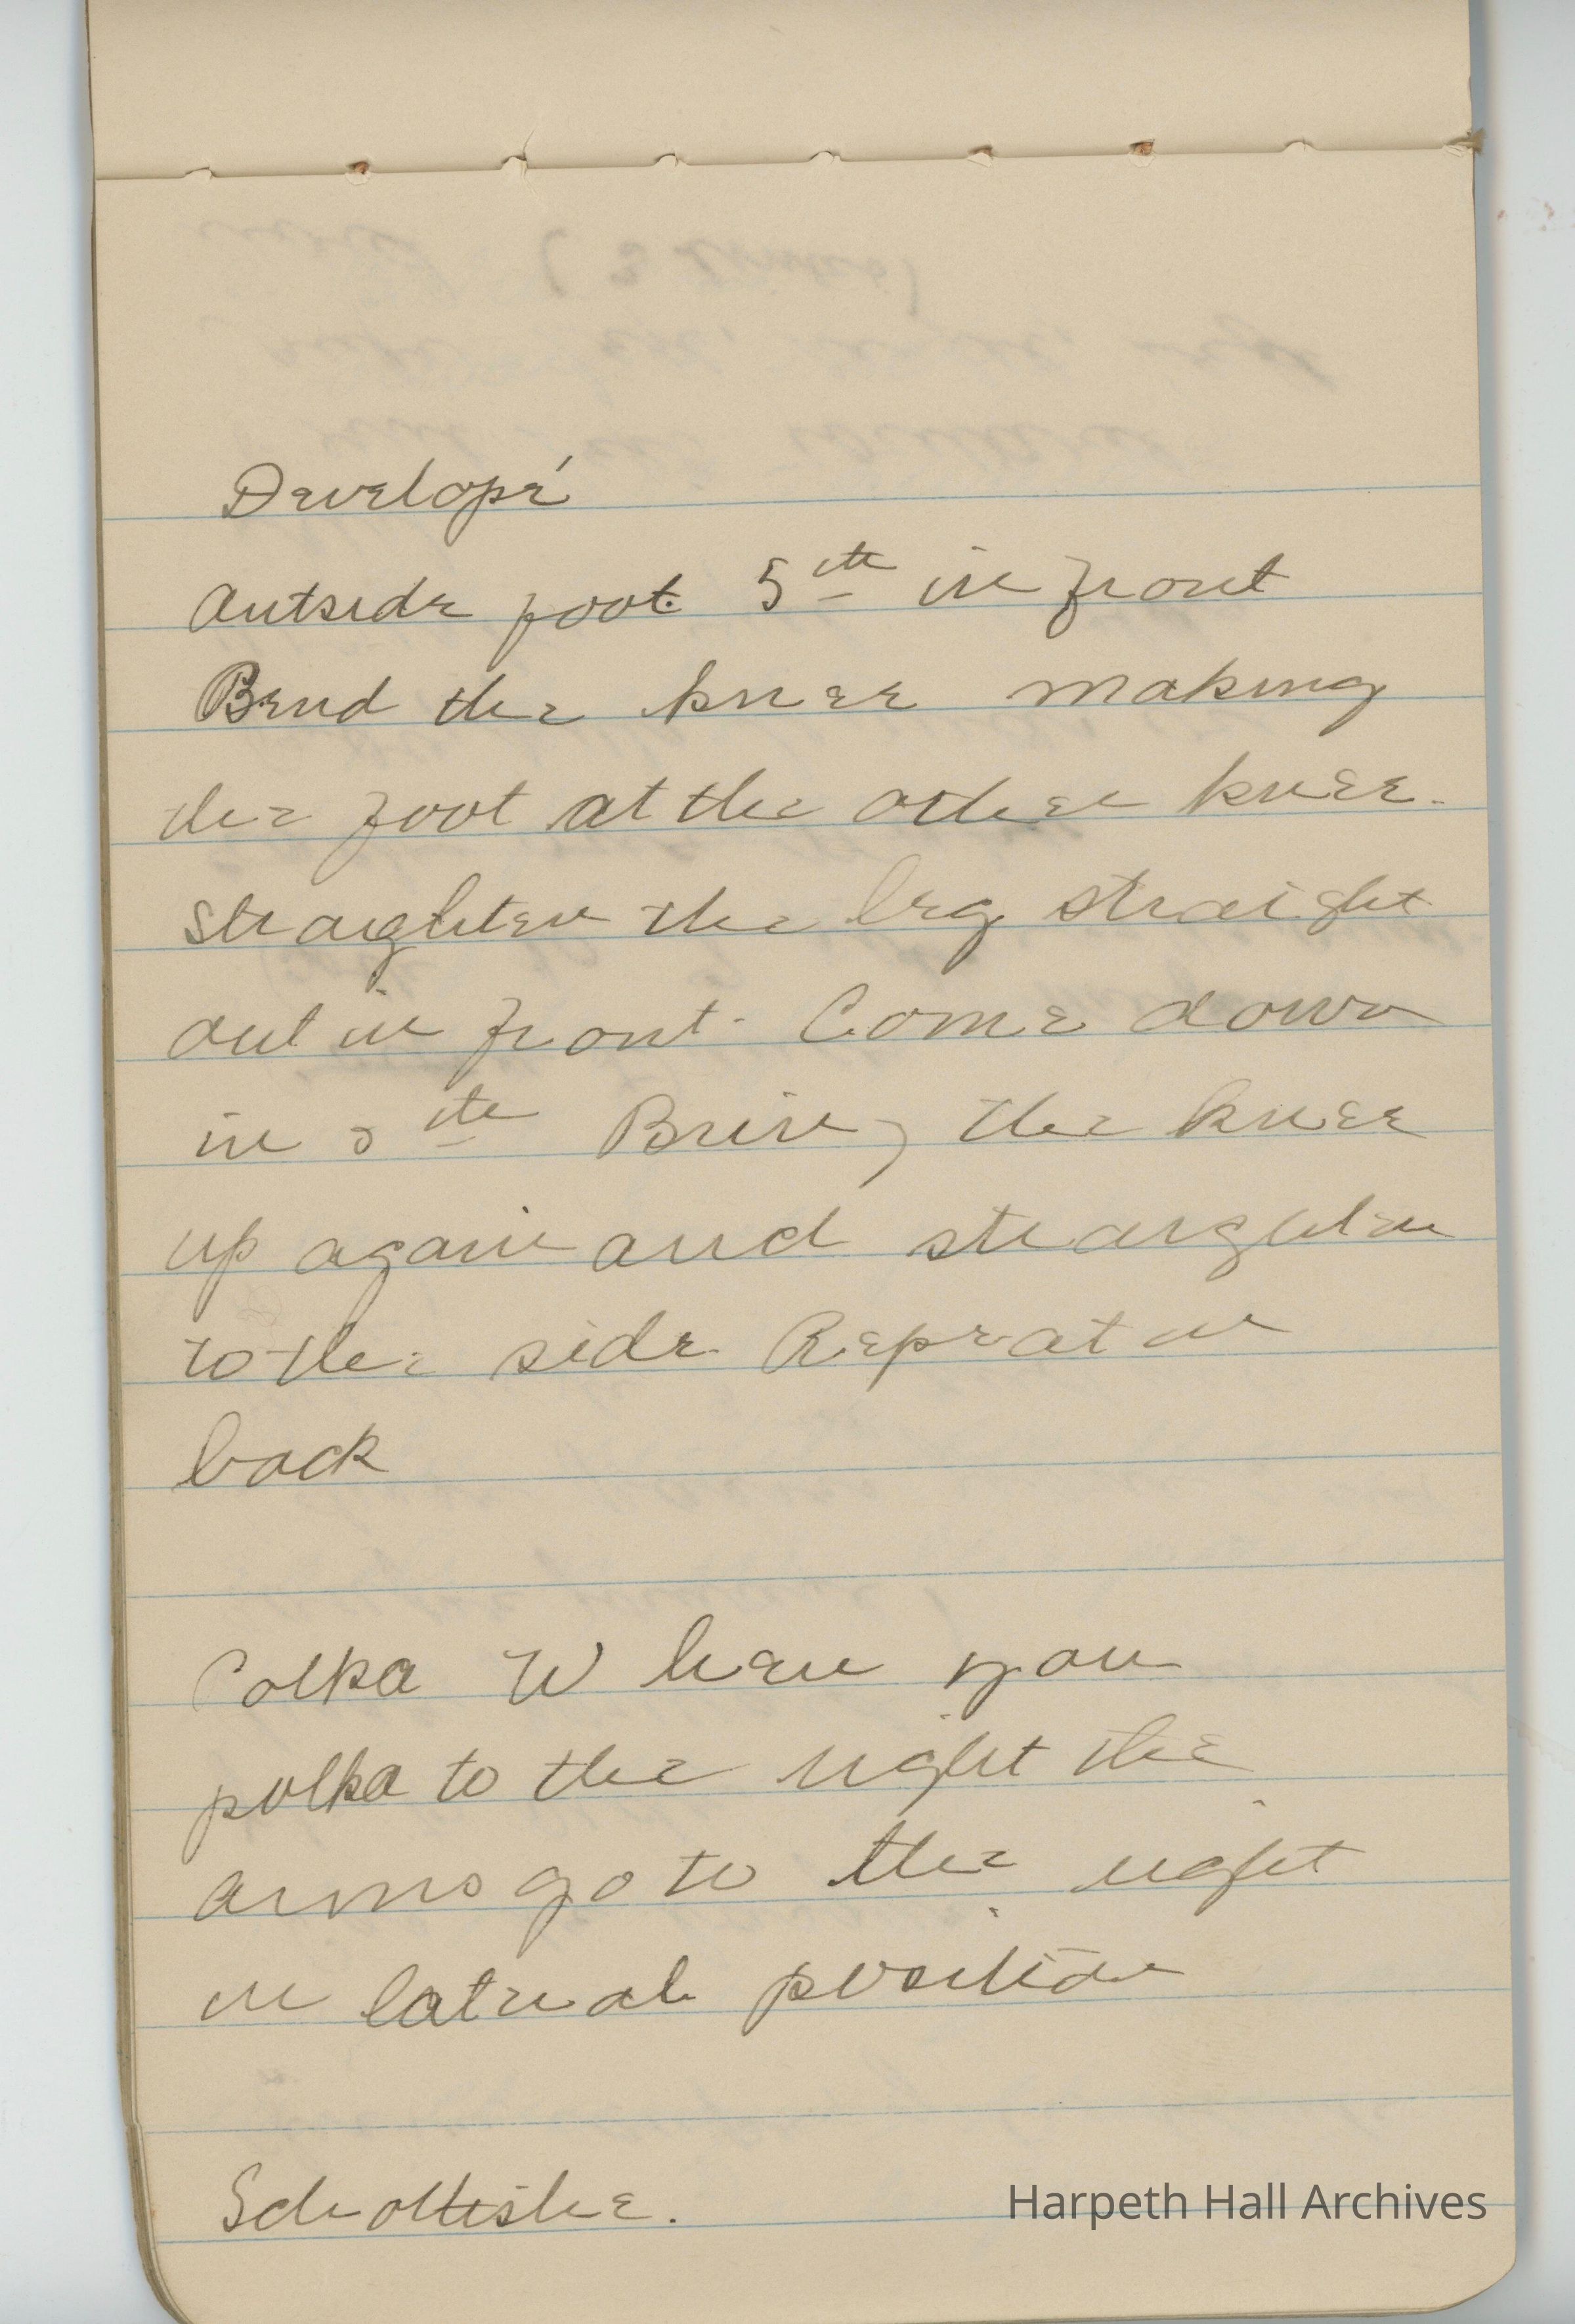 Developé
Outside foot 5th in front
Bend the knee making
the foot at the other knee.
straighten the leg straight
out in front. Come down
in 5th Bring the knee
up again and straighten
to the side. Repeat in
back
Polka When you
polka to the right the
arms go to the right
in latral position
Schottishe.
Harpeth Hall Archives